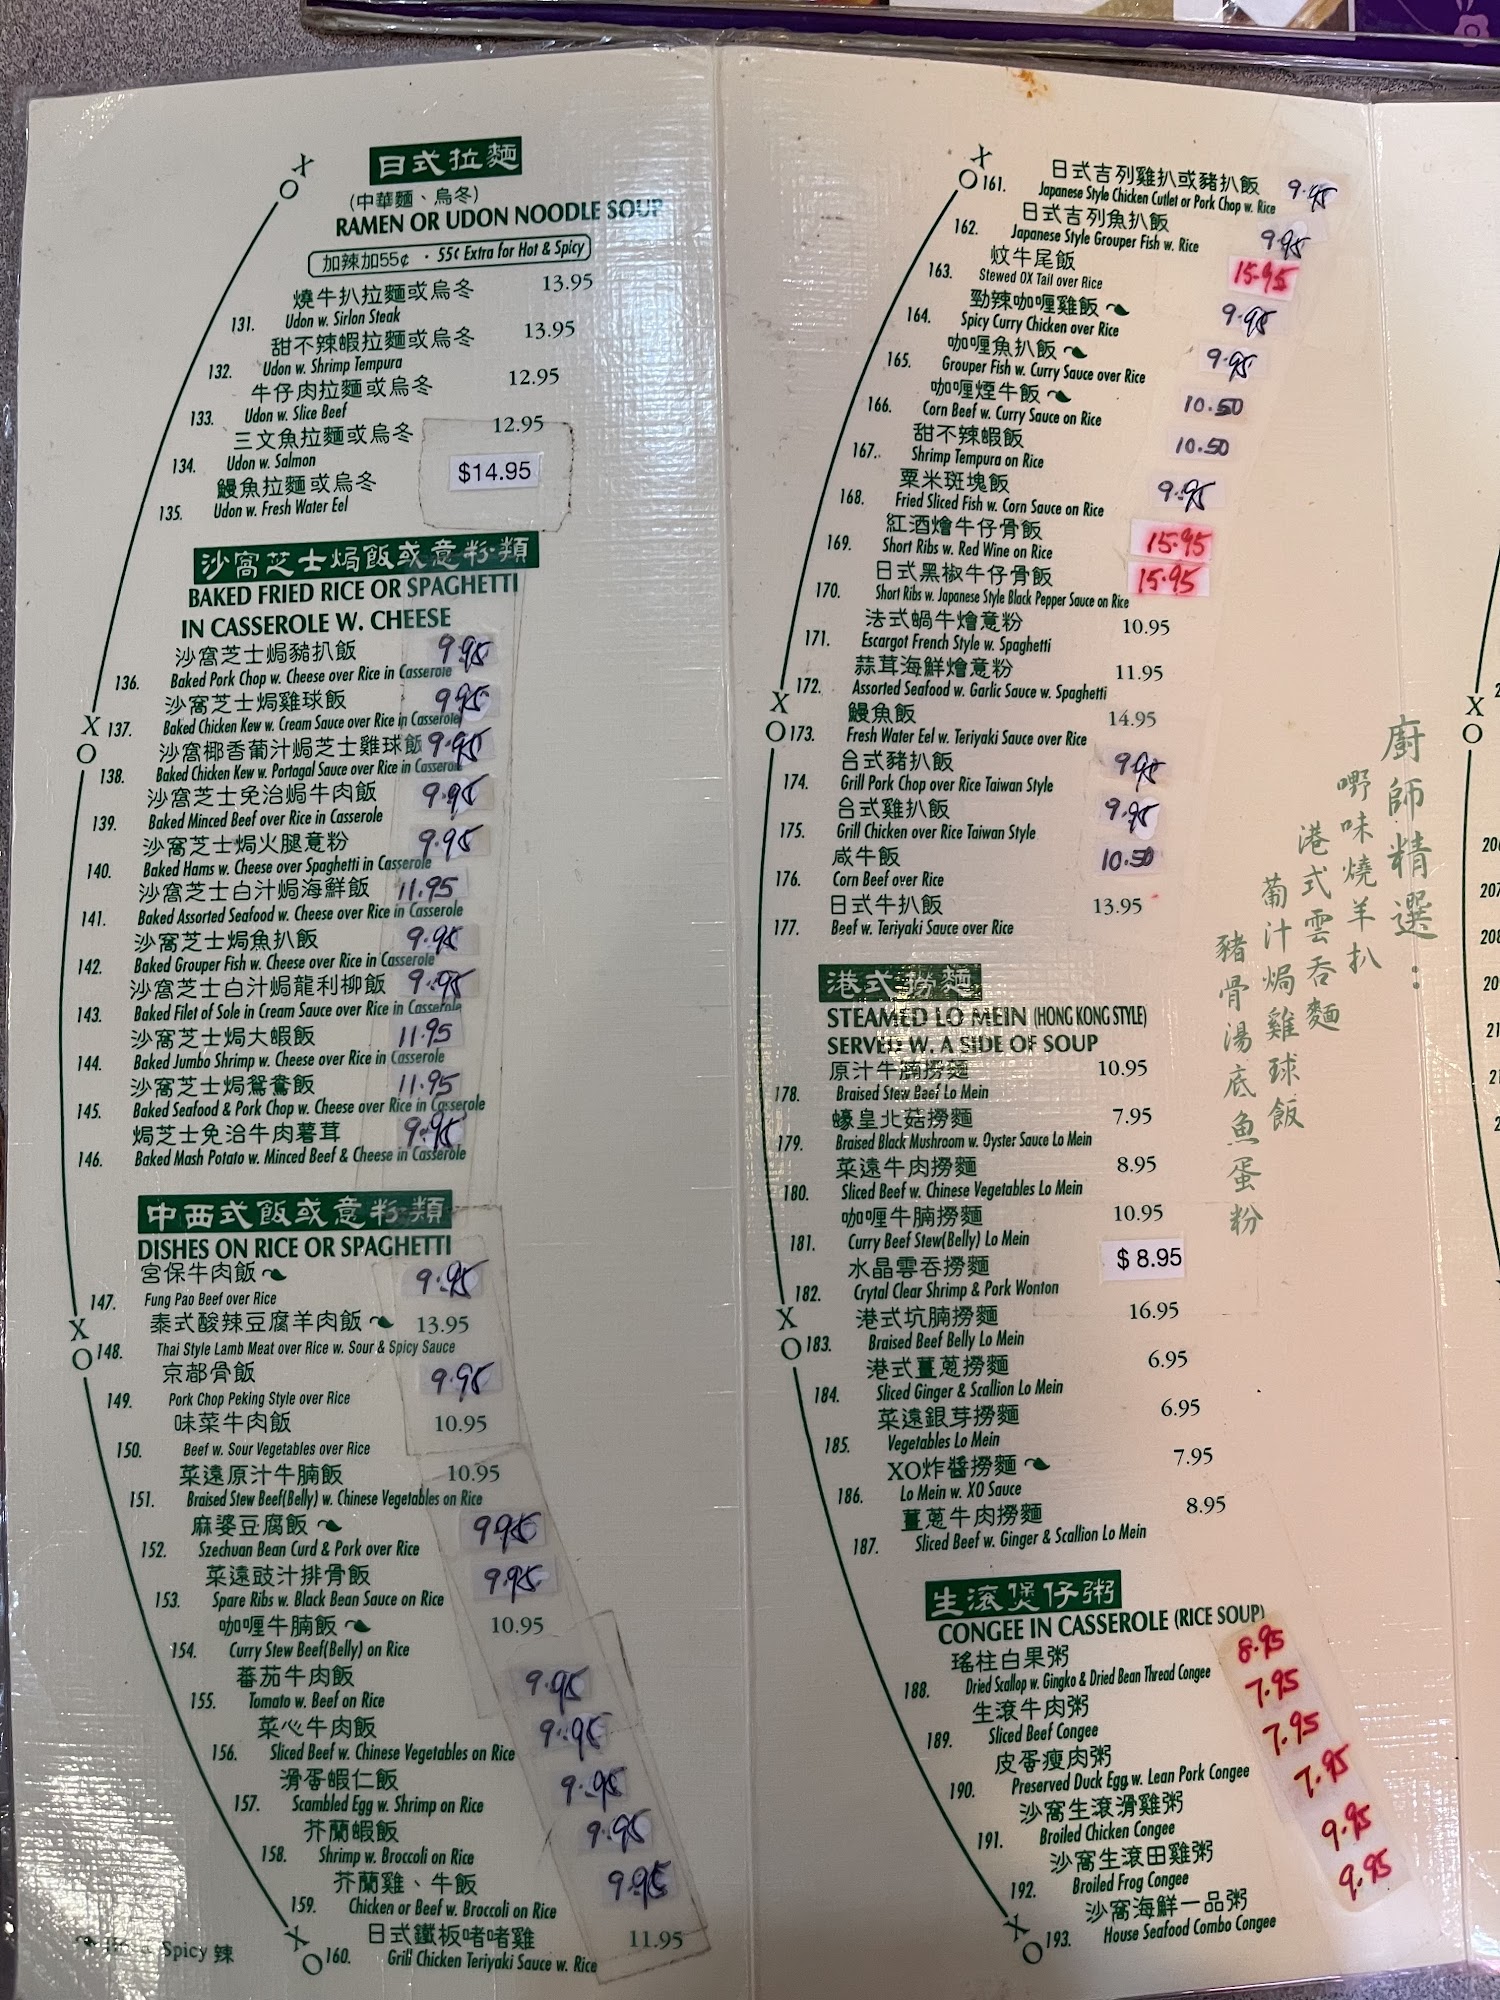 日式拉麵
(中華麵、烏冬)
RAMEN OR UDON NOODLE SOUP
加辣加55¢ · 55¢ Extra for Hot & Spicy
燒牛扒拉麵或烏冬 13.95
131. Udon w. Sirlon Steak
甜不辣蝦拉麵或烏冬 13.95
132. Udon w. Shrimp Tempura
牛仔肉拉麵或烏冬 12.95
133. Udon w. Slice Beef
三文魚拉麵或烏冬 12.95
134. Udon w. Salmon
鰻魚拉麵或烏冬 $14.95
135. Udon w. Fresh Water Eel
沙窩芝士焗飯或意粉類
BAKED FRIED RICE OR SPAGHETTI
IN CASSEROLE W. CHEESE
沙窩芝士焗豬扒飯 9.95
136. Baked Pork Chop w. Cheese over Rice in Casserole
沙窩芝士焗雞球飯 9.95
137. Baked Chicken Kew w. Cream Sauce over Rice in Casserole
沙窩椰香葡汁焗芝士雞球飯 9.95
138. Baked Chicken Kew w. Portagal Sauce over Rice in Casserole
沙窩芝士免治焗牛肉飯 9.95
139. Baked Minced Beef over Rice in Casserole
沙窩芝士焗火腿意粉 9.95
140. Baked Hams w. Cheese over Spaghetti in Casserole
沙窩芝士白汁焗海鮮飯 11.95
141. Baked Assorted Seafood w. Cheese over Rice in Casserole
沙窩芝士焗魚扒飯 9.95
142. Baked Grouper Fish w. Cheese over Rice in Casserole
沙窩芝士白汁焗龍利柳飯 9.95
143. Baked Filet of Sole in Cream Sauce over Rice in Casserole
沙窩芝士焗大蝦飯 11.95
144. Baked Jumbo Shrimp w. Cheese over Rice in Casserole
沙窩芝士焗鴛鴦飯 11.95
145. Baked Seafood & Pork Chop w. Cheese over Rice in Casserole
焗芝士免治牛肉薯茸 9.95
146. Baked Mash Potato w. Minced Beef & Cheese in Casserole
中西式飯或意粉類
DISHES ON RICE OR SPAGHETTI
宮保牛肉飯 9.95
147. Fung Pao Beef over Rice
泰式酸辣豆腐羊肉飯 13.95
148. Thai Style Lamb Meat over Rice w. Sour & Spicy Sauce
京都骨飯 9.95
149. Pork Chop Peking Style over Rice
味菜牛肉飯 10.95
150. Beef w. Sour Vegetables over Rice
菜遠原汁牛腩飯 10.95
151. Braised Stew Beef(Belly) w. Chinese Vegetables on Rice
麻婆豆腐飯 9.95
152. Szechuan Bean Curd & Pork over Rice
菜遠豉汁排骨飯 9.95
153. Spare Ribs w. Black Bean Sauce on Rice
咖喱牛腩飯 10.95
154. Curry Stew Beef(Belly) on Rice
蕃茄牛肉飯 9.95
155. Tomato w. Beef on Rice
菜心牛肉飯 9.95
156. Sliced Beef w. Chinese Vegetables on Rice
滑蛋蝦仁飯 9.95
157. Scambled Egg w. Shrimp on Rice
芥蘭蝦飯 9.95
158. Shrimp w. Broccoli on Rice
芥蘭雞、牛飯 9.95
159. Chicken or Beef w. Broccoli on Rice
日式鐵板啫啫雞 11.95
160. Grill Chicken Teriyaki Sauce w. Rice
Spicy 辣
日式吉列雞扒或豬扒飯 9.95
161. Japanese Style Chicken Cutlet or Pork Chop w. Rice
日式吉列魚扒飯 9.95
162. Japanese Style Grouper Fish w. Rice
炆牛尾飯 15.95
163. Stewed OX Tail over Rice
勁辣咖喱雞飯 9.95
164. Spicy Curry Chicken over Rice
咖喱魚扒飯 9.95
165. Grouper Fish w. Curry Sauce over Rice
咖喱煙牛飯 10.50
166. Corn Beef w. Curry Sauce on Rice
甜不辣蝦飯 10.50
167. Shrimp Tempura on Rice
粟米斑塊飯 9.95
168. Fried Sliced Fish w. Corn Sauce on Rice
紅酒燴牛仔骨飯 15.95
169. Short Ribs w. Red Wine on Rice
日式黑椒牛仔骨飯 15.95
170. Short Ribs w. Japanese Style Black Pepper Sauce on Rice
法式蝸牛燴意粉 10.95
171. Escargot French Style w. Spaghetti
蒜茸海鮮燴意粉 11.95
172. Assorted Seafood w. Garlic Sauce w. Spaghetti
鰻魚飯 14.95
173. Fresh Water Eel w. Teriyaki Sauce over Rice
台式豬扒飯 9.95
174. Grill Pork Chop over Rice Taiwan Style
台式雞扒飯 9.95
175. Grill Chicken over Rice Taiwan Style
咸牛飯 10.50
176. Corn Beef over Rice
日式牛扒飯 13.95
177. Beef w. Teriyaki Sauce over Rice
港式撈麵
STEAMED LO MEIN (HONG KONG STYLE)
SERVED W. A SIDE OF SOUP
原汁牛腩撈麵 10.95
178. Braised Stew Beef Lo Mein
蠔皇北菇撈麵 7.95
179. Braised Black Mushroom w. Oyster Sauce Lo Mein
菜遠牛肉撈麵 8.95
180. Sliced Beef w. Chinese Vegetables Lo Mein
咖喱牛腩撈麵 10.95
181. Curry Beef Stew(Belly) Lo Mein
水晶雲吞撈麵 $ 8.95
182. Crytal Clear Shrimp & Pork Wonton
港式坑腩撈麵 16.95
183. Braised Beef Belly Lo Mein
港式薑蔥撈麵 6.95
184. Sliced Ginger & Scallion Lo Mein
菜遠銀芽撈麵 6.95
185. Vegetables Lo Mein
XO炸醬撈麵 7.95
186. Lo Mein w. XO Sauce
薑蔥牛肉撈麵 8.95
187. Sliced Beef w. Ginger & Scallion Lo Mein
生滾煲仔粥
CONGEE IN CASSEROLE (RICE SOUP)
瑤柱白果粥 8.95
188. Dried Scallop w. Gingko & Dried Bean Thread Congee
生滾牛肉粥 7.95
189. Sliced Beef Congee
皮蛋瘦肉粥 7.95
190. Preserved Duck Egg w. Lean Pork Congee
沙窩生滾滑雞粥 7.95
191. Broiled Chicken Congee
沙窩生滾田雞粥 9.95
192. Broiled Frog Congee
沙窩海鮮一品粥 9.95
193. House Seafood Combo Congee
廚師精選：
嘢味燒羊扒
港式雲吞麵
葡汁焗雞球飯
豬骨湯底魚蛋粉
207